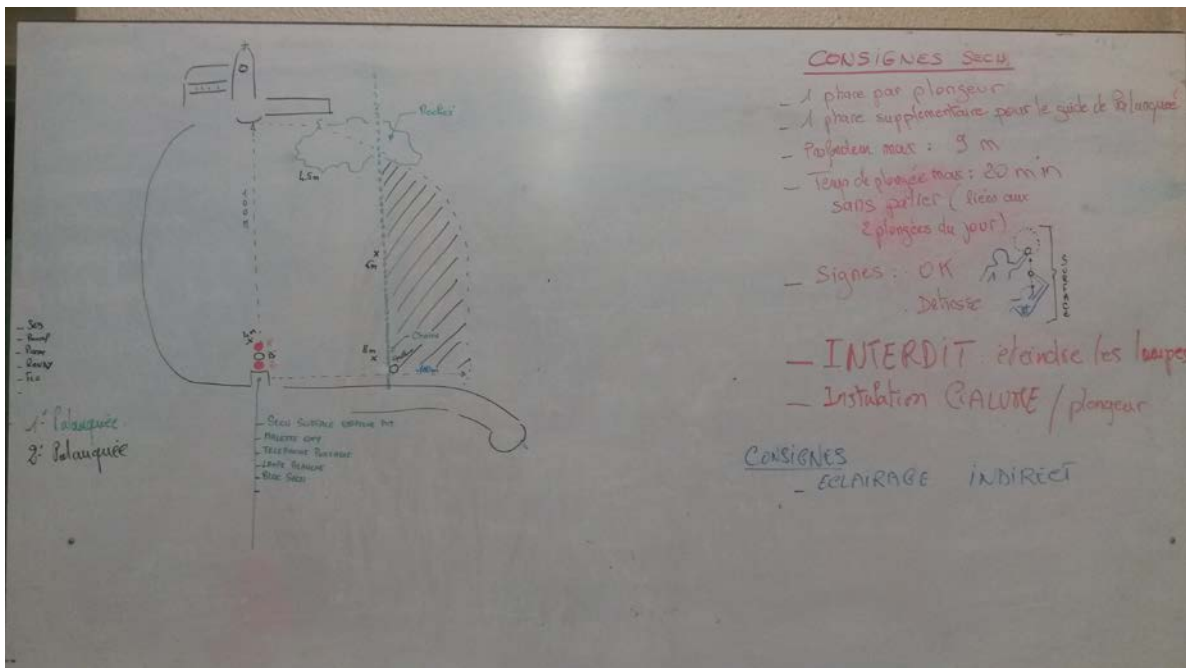 Rocher
4,5m
100m
6m
8m
Chaine
- SEB
1° Palanquée
2° Palanquée
- SECU SURFACE
- MALETTE OXY
- TELEPHONE PORTABLE
- LAMPE BLANCHE
- BLOC SECU
CONSIGNES SECU.
- 1 phare par plongeur
- 1 phare supplémentaire pour le guide de Palanquée
- Profondeur max : 9 m
- Temps de plongée max : 20 min
sans palier (liées aux
2 plongées du jour)
- Signes : OK
Detresse
SURFACE
- INTERDIT éteindre les lampes
- Instalation CYALUME / plongeur
CONSIGNES
- ECLAIRAGE INDIRECT